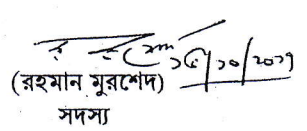 ২৫/১০/২০২১
(রহমান মুরশেদ)
সদস্য